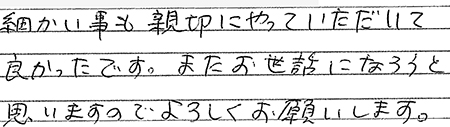 細かい事も親切にやっていただいて
良かったです。またお世話になろうと
思いますのでよろしくお願いします。